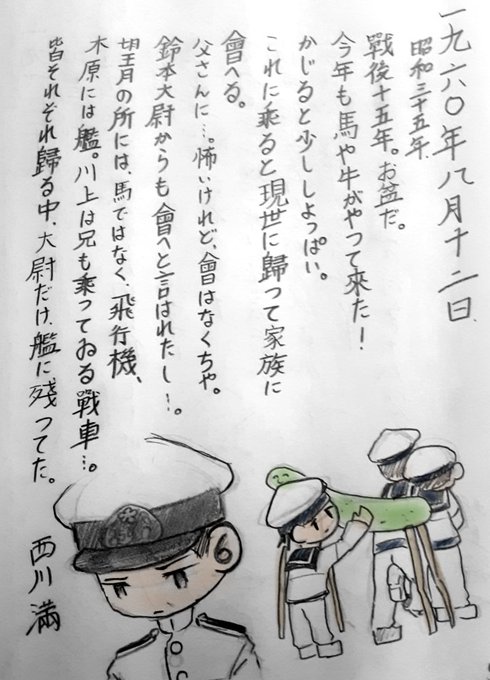 一九六〇年八月十二日
昭和三十五年
戰後十五年。お盆だ。
今年も馬や牛がやって來た！
かじると少ししよっぱい。
これに乘ると現世に歸って家族に
會へる。
父さんに…。怖いけれど、會はなくちや。
鈴本大尉からも會へと言はれたし…。
望月の所には、馬ではなく、飛行機、
木原には艦。川上は兄も乘ってゐる戰車…。
皆それぞれ歸る中、大尉だけ、艦に残ってた。
西川満